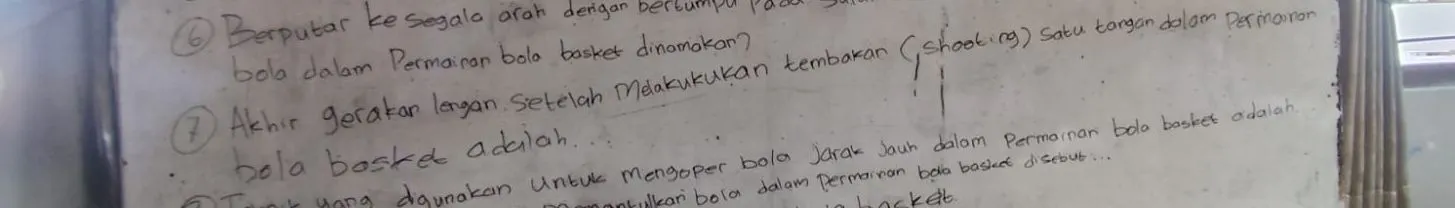 ⑥ Berputar ke segala arah dengan bertumpu pada
bola dalam Permainan bola basket dinamakan?
⑦ Akhir gerakan lengan setelah Melakukukan tembakan (shooting) satu tangan dalam Permainan
bola basket adalah...
yang digunakan untuk mengoper bola jarak jauh dalam Permainan bola basket adalah
bola dalam Permainan bola basket disebut...
basket